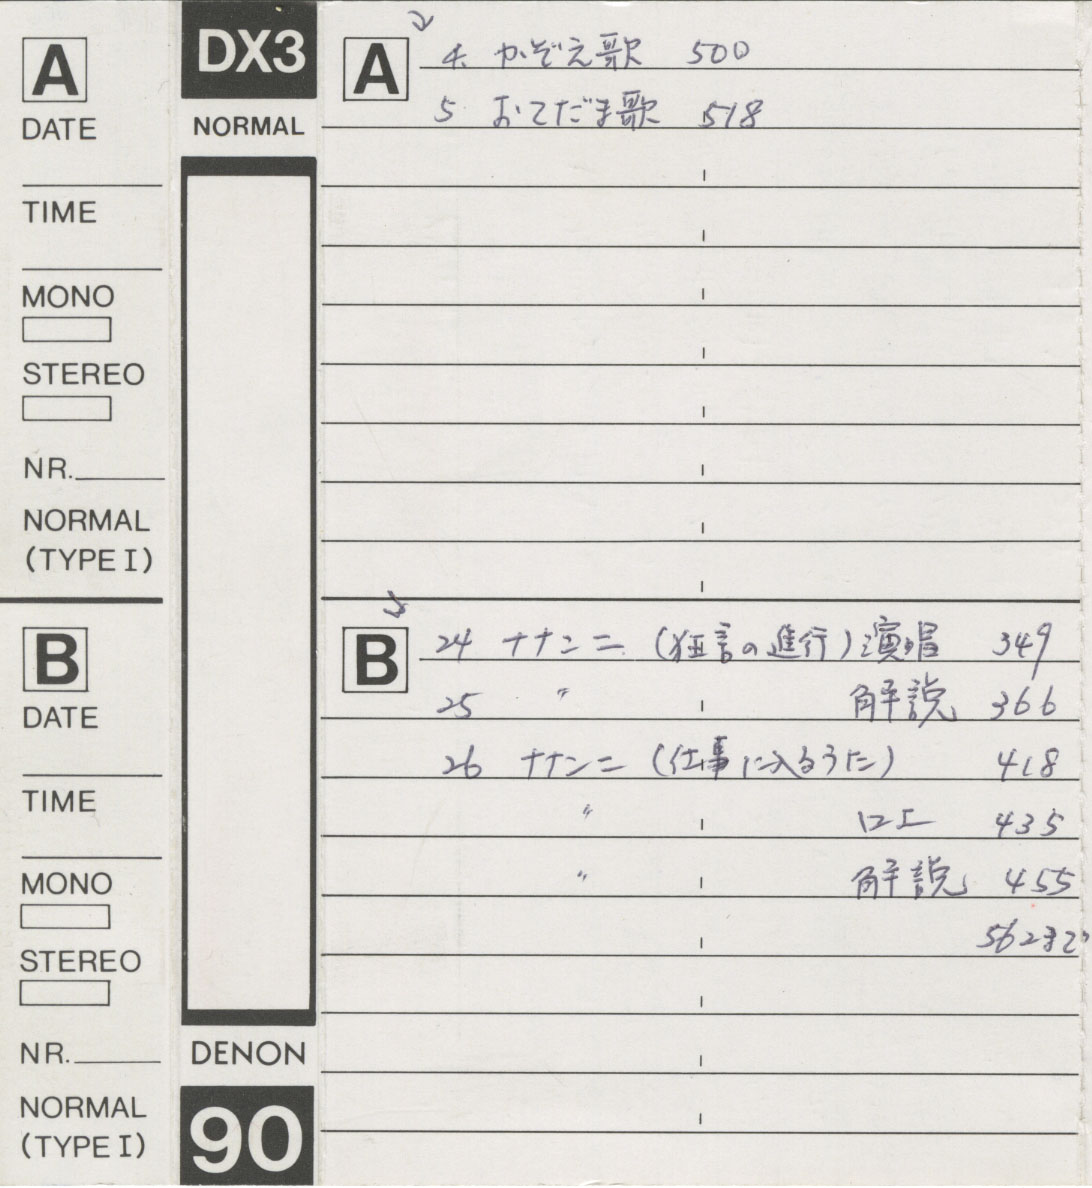 A
DATE
TIME
MONO
STEREO
NR.
NORMAL
(TYPE I)
B
DATE
TIME
MONO
STEREO
NR.
NORMAL
(TYPE I)
DX3
NORMAL
DENON
90
A
4. かぞえ歌 500
5 おてだま歌 518
B
24 ナナンニ (狂言の進行) 演唱 349
25 〃 解説 366
26 ナナンニ (仕事に入るうた) 418
〃 口工 435
〃 解説 455
562まで